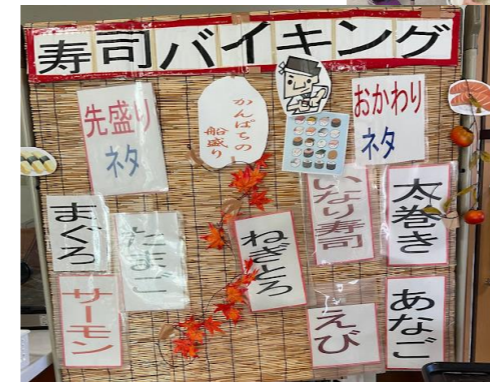 寿司バイキング
先盛り
ネタ
かんぱちの
船盛り
おかわり
ネタ
まぐろ
たまご
サーモン
ねぎとろ
いなり寿司
太巻き
えび
あなご